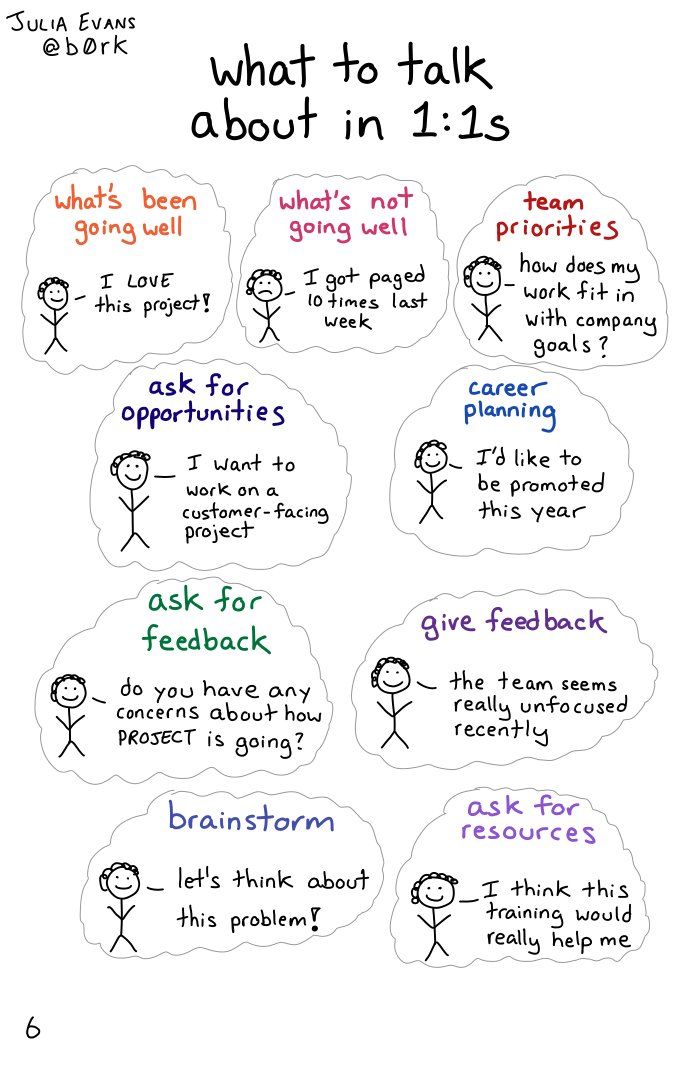 JULIA EVANS
@b0rk
what to talk
about in 1:1s
what's been
going well
I LOVE
this project!
what's not
going well
I got paged
10 times last
week
team
priorities
how does my
work fit in
with company
goals?
ask for
opportunities
I want to
work on a
customer-facing
project
career
planning
I'd like to
be promoted
this year
ask for
feedback
do you have any
concerns about how
PROJECT is going?
give feedback
the team seems
really unfocused
recently
brainstorm
let's think about
this problem!
ask for
resources
I think this
training would
really help me
6